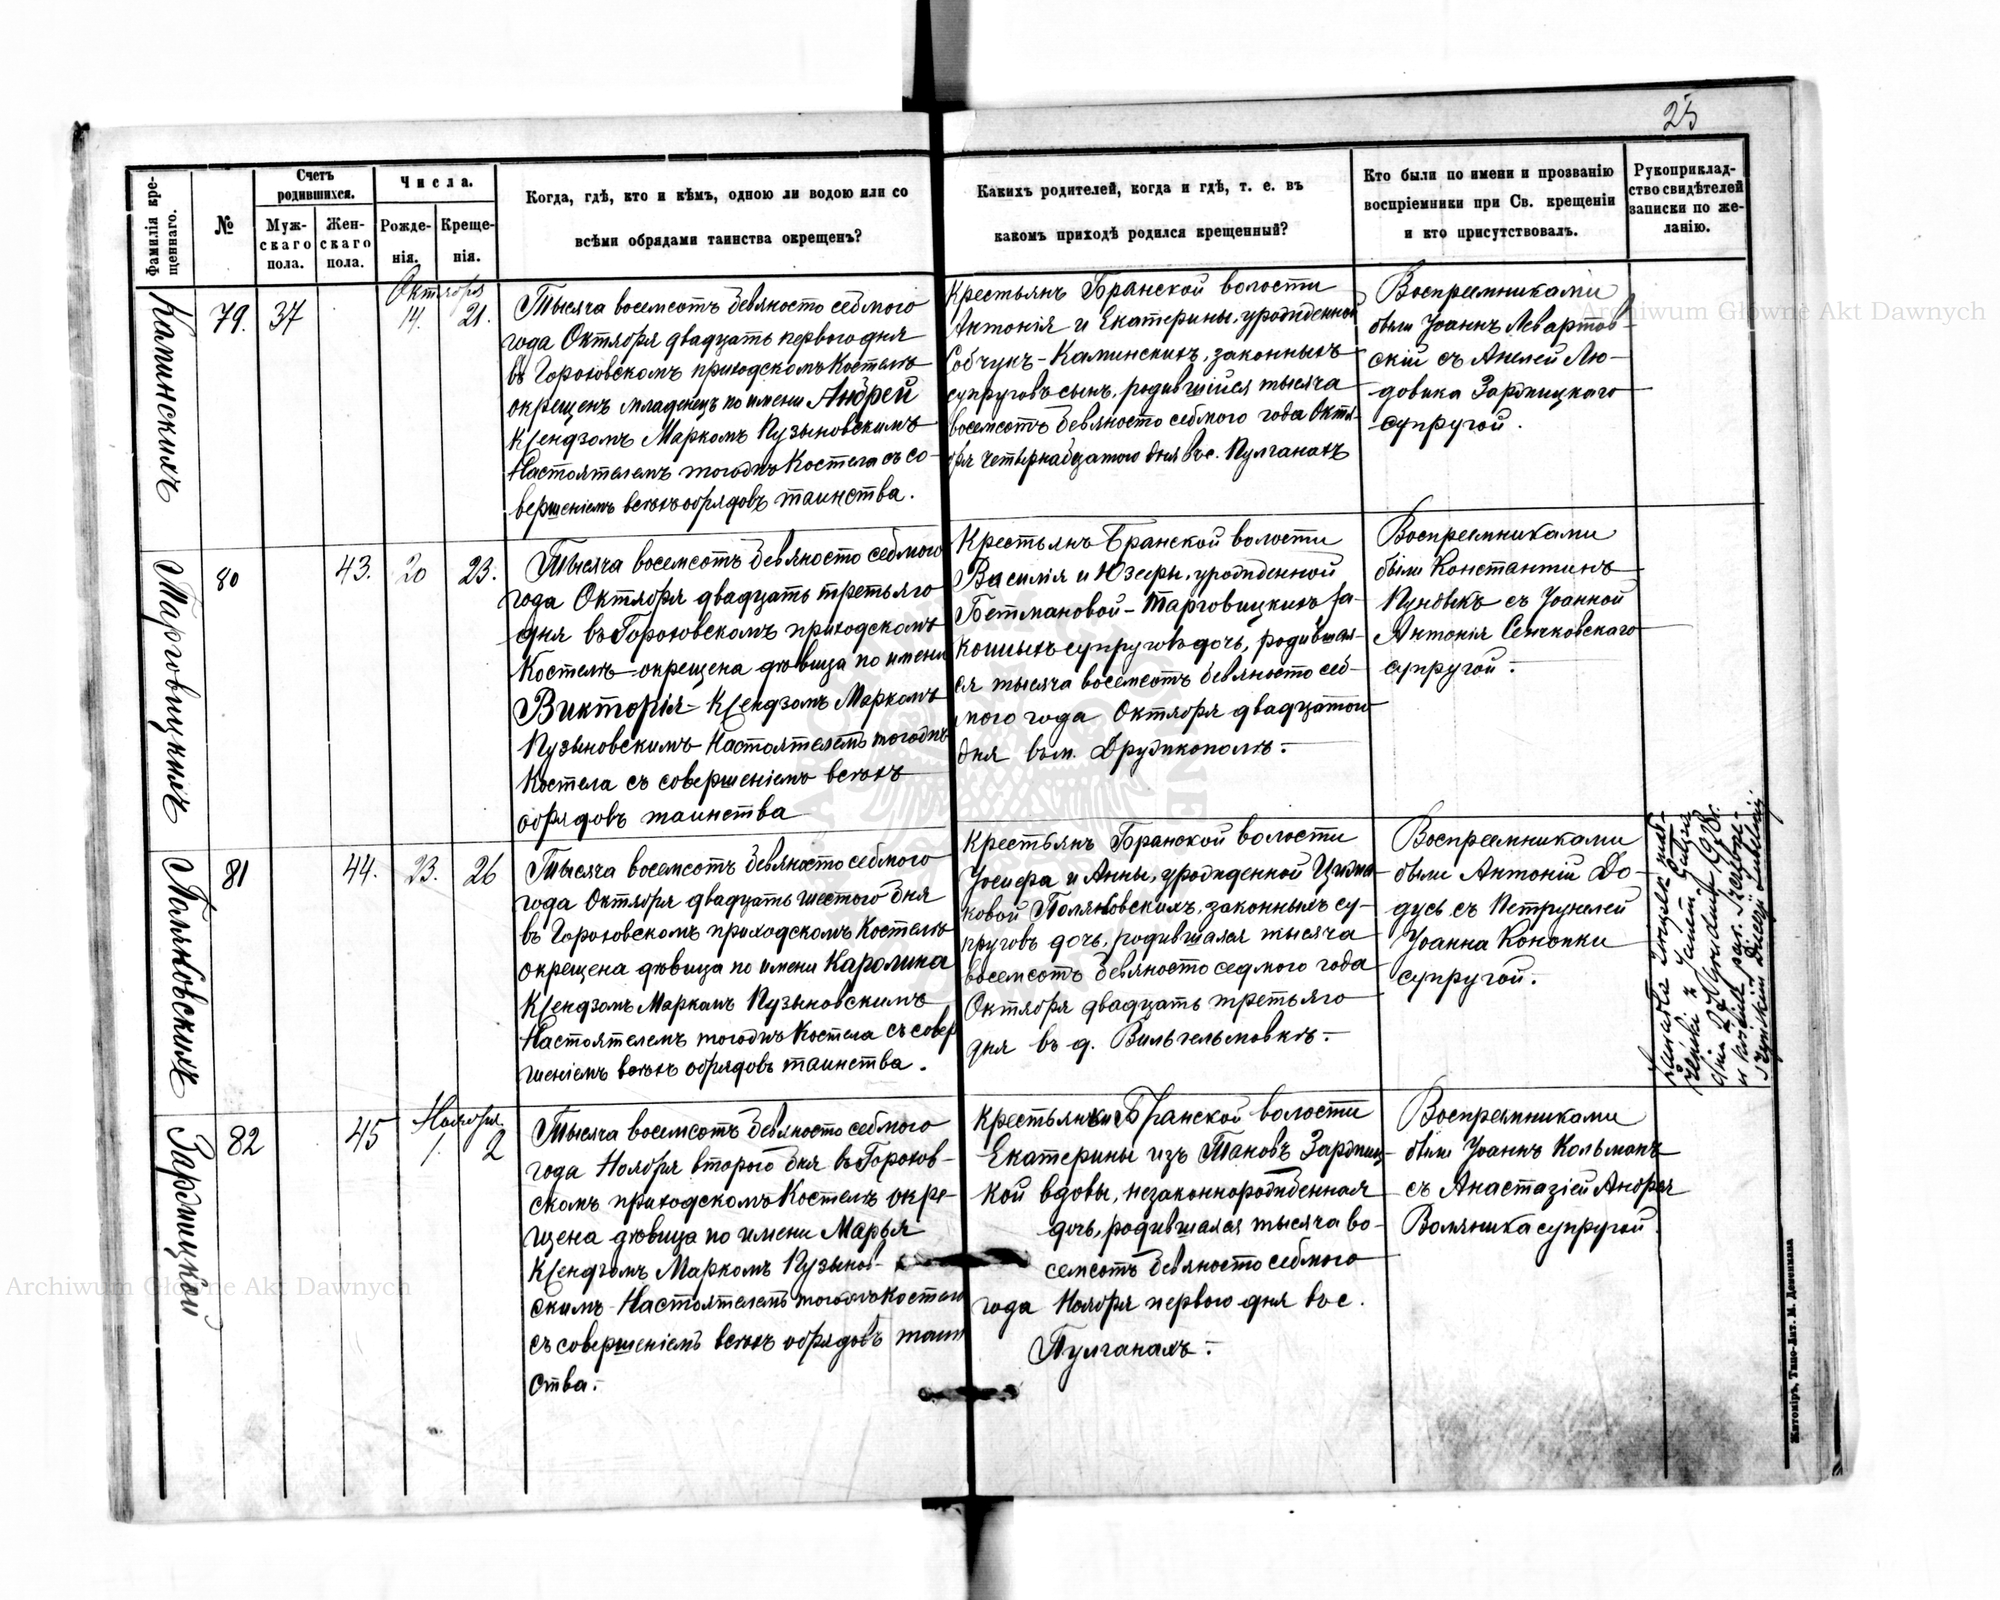 25
Фамилія кре-
щеннаго.
№
Счетъ
родившихся.
Муж-
скаго
пола.
Жен-
скаго
пола.
Числа.
Рожде-
нія.
Креще-
нія.
Когда, гдѣ, кто и кѣмъ, одною ли водою или со
всѣми обрядами таинства окрещенъ?
Какихъ родителей, когда и гдѣ, т. е. въ
какомъ приходѣ родился крещенный?
Кто были по имени и прозванію
воспріемники при Св. крещеніи
и кто присутствовалъ.
Рукоприклад-
ство свидѣтелей
записки по же-
ланію.
Каминскихъ
79.
37
Октября
14.
21.
Тысяча восемсотъ девяносто седмого
года Октября двадцать первого дня
въ Гороховскомъ приходскомъ Костелѣ
окрещенъ младенецъ по имени Андрей
Ксендзомъ Маркомъ Пузыновскимъ
Настоятелемъ тогожъ Костела съ со-
вершеніемъ всѣхъ обрядовъ таинства.
Крестьянъ Бранской волости
Антонія и Екатерины, урожденной
Собчукъ-Каминскихъ, законныхъ
супруговъ сынъ, родившійся тысяча
восемсотъ девяносто седмого года Октя-
бря четырнадцатого дня въ с. Пулганахъ
Воспреемниками
были Іоаннъ Левартов-
скій съ Анелей Лю-
довика Зармицкаго
супругой.
Тарговицкихъ
80
43.
20
23.
Тысяча восемсотъ девяносто седмого
года Октября двадцать третьяго
дня въ Гороховскомъ приходскомъ
Костелѣ окрещена дѣвица по имени
Викторія Ксендзомъ Маркомъ
Пузыновскимъ Настоятелемъ тогожъ
Костела съ совершеніемъ всѣхъ
обрядовъ таинства
Крестьянъ Бранской волости
Василія и Юзефы, урожденной
Бетмановой-Тарговицкихъ за-
конныхъ супруговъ дочь, родившая-
ся тысяча восемсотъ девяносто сед-
мого года Октября двадцатого
дня въ м. Дружкополѣ.
Воспреемниками
были Константинъ
съ Іоанной
Антонія Сенчковскаго
супругой.
Поляновскихъ
81
44.
23.
26
Тысяча восемсотъ девяносто седмого
года Октября двадцать шестого дня
въ Гороховскомъ приходскомъ Костелѣ
окрещена дѣвица по имени Каролина
Ксендзомъ Маркомъ Пузыновскимъ
Настоятелемъ тогожъ Костела съ совер
шеніемъ всѣхъ обрядовъ таинства.
Крестьянъ Бранской волости
Іосифа и Анны, урожденной
Поляновскихъ, законныхъ су-
пруговъ дочь, родившаяся тысяча
восемсотъ девяносто седмого года
Октября двадцать третьяго
дня въ д. Вильгельмовкѣ.
Воспреемниками
были Антоній До-
дусь съ Петрунелей
Іоанна Конопки
супругой.
1928 r.
Зармицкой
82
45
Ноября
1.
2
Тысяча восемсотъ девяносто седмого
года Ноября второго дня въ Горохов-
скомъ приходскомъ Костелѣ окре-
щена дѣвица по имени Марья
Ксендзомъ Маркомъ Пузынов-
скимъ Настоятелемъ тогожъ Костела
съ совершеніемъ всѣхъ обрядовъ таин
ства.
Крестьянки Бранской волости
Екатерины изъ Пановъ Зармиц-
кой вдовы, незаконнорожденная
дочь, родившаяся тысяча во-
семсотъ девяносто седмого
года Ноября первого дня въ с.
Пулганахъ.
Воспреемниками
были Іоаннъ Кольманъ
съ Анастазіей Андрея
супругой.
Житоміръ, Типо-Лит. М. Дененмана
Archiwum Główne Akt Dawnych
Archiwum Główne Akt Dawnych